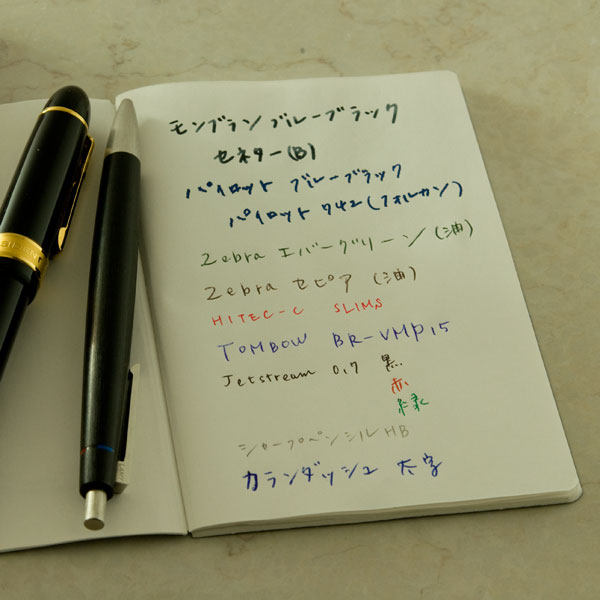 モンブラン ブルーブラック
セネター(B)
パイロット ブルーブラック
パイロット 742(フォルカン)
Zebra エバーグリーン(油)
Zebra セピア(油)
HITEC-C SLIMS
TOMBOW BR-VMP15
Jetstream 0,7 黒
赤
緑
シャープペンシル HB
カランダッシュ 太字